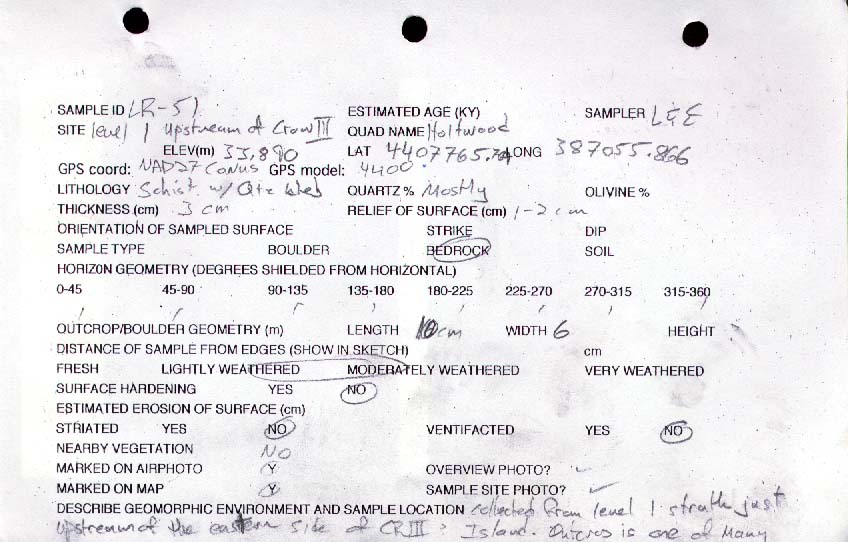 SAMPLE ID LR-51 ESTIMATED AGE (KY) SAMPLER L&E
SITE level 1 Upstream of Crow III QUAD NAME Holtwood
ELEV(m) 33.890 LAT 4407765.7 LONG 387055.866
GPS coord: NAD27 Conus GPS model: 4400
LITHOLOGY Schist w/ Qtz QUARTZ % Mostly OLIVINE %
THICKNESS (cm) 3 cm RELIEF OF SURFACE (cm) 1-2 cm
ORIENTATION OF SAMPLED SURFACE STRIKE DIP
SAMPLE TYPE BOULDER BEDROCK SOIL
HORIZON GEOMETRY (DEGREES SHIELDED FROM HORIZONTAL)
0-45 45-90 90-135 135-180 180-225 225-270 270-315 315-360
OUTCROP/BOULDER GEOMETRY (m) LENGTH 10cm WIDTH 6 HEIGHT
DISTANCE OF SAMPLE FROM EDGES (SHOW IN SKETCH) cm
FRESH LIGHTLY WEATHERED MODERATELY WEATHERED VERY WEATHERED
SURFACE HARDENING YES NO
ESTIMATED EROSION OF SURFACE (cm)
STRIATED YES NO VENTIFACTED YES NO
NEARBY VEGETATION NO
MARKED ON AIRPHOTO Y OVERVIEW PHOTO? ✓
MARKED ON MAP Y SAMPLE SITE PHOTO? ✓
DESCRIBE GEOMORPHIC ENVIRONMENT AND SAMPLE LOCATION collected from level 1 strath just
upstream of the eastern side of CRIII Island. is one of Many